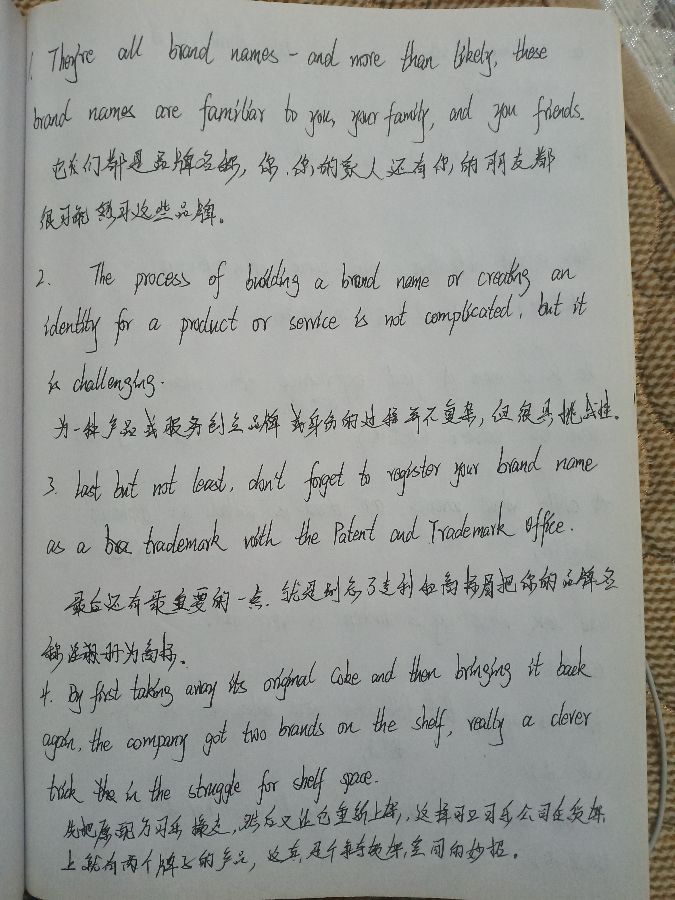 1. They're all brand names - and more than likely, these
brand names are familiar to you, your family, and you friends.
它们都是品牌名称，你、你的家人还有你的朋友都
很可能熟习这些品牌。
2. The process of building a brand name or creating an
identity for a product or service is not complicated, but it
is challenging.
为一种产品或服务创立品牌或身份的过程并不复杂，但很具挑战性。
3. Last but not least, don't forget to register your brand name
as a trademark with the Patent and Trademark Office.
最后还有最重要的一点，就是别忘了去专利和商标局把你的品牌名
称注册为商标。
4. By first taking away its original Coke and then bringing it back
again, the company got two brands on the shelf, really a clever
trick in the struggle for shelf space.
先把原配方可乐撤走，然后又让它重新上架，这样可口可乐公司在货架
上就有两个牌子的产品，这真是个争夺货架空间的妙招。